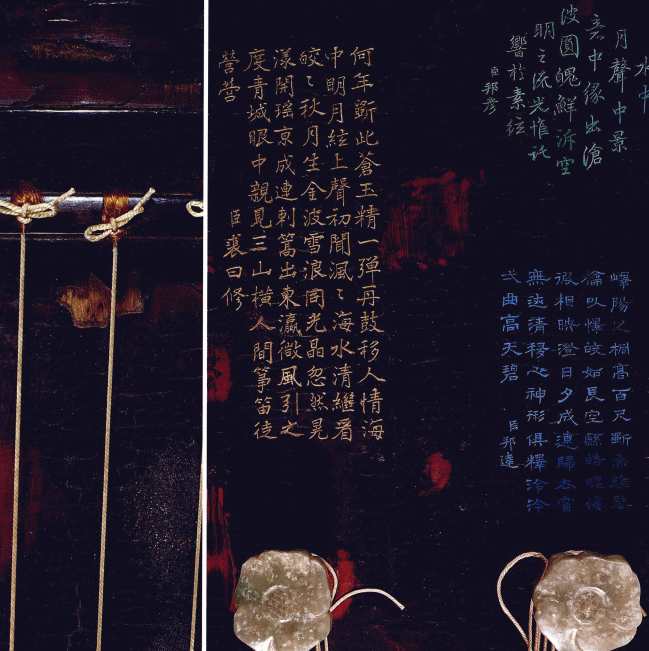 水中
月聲中景
緣出滄
波圓魄鮮空
明之流光惟託
響於素絃
臣邦彥
嶧陽之桐高百尺斲為雅琴
以懌故如長空皓魄
相映澄日夕成連歸去
無迹清移心神形俱釋泠泠
曲高天碧
臣邦達
何年斲此蒼玉精一弹再鼓移人情海
中明月絃上聲初聞渢〻海水清繼看
皎〻秋月生金波雪浪同光晶忽然晃
漾開瑤京成連刺篙出東瀛微風引之
度青城眼中親見三山橫人間箏笛徒
營營
臣裘曰修